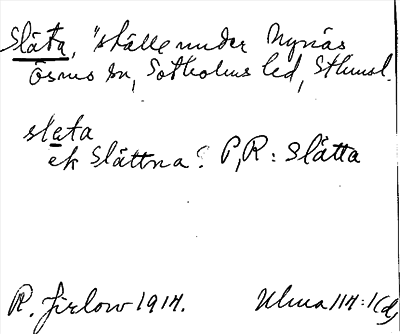 Släta, "ställe under Nynäs
Ösmo sn, Sotholms hd, Sthmsl.
sleta
ek Slättna? P,R: Slätta
R. Jirlow 1914. Ulma 114:1(d)